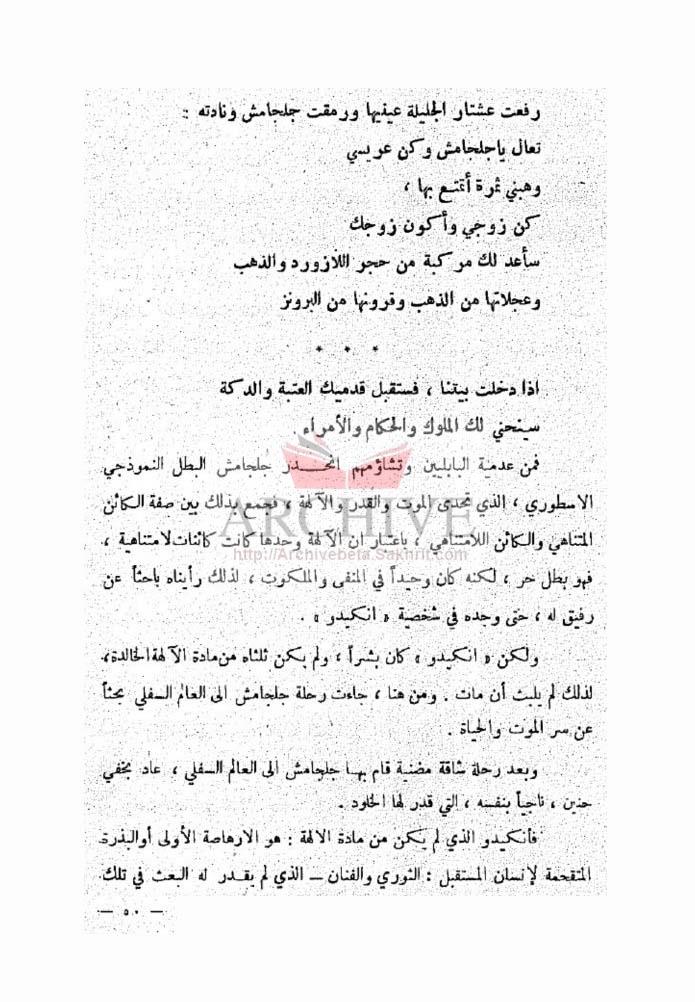 رفعت عشتار الجليلة عينيها ورمقت جلجامش ونادته :
تعال ياجلجامش وكن عريسي
وهبني ثمرة أتمتع بها ،
كن زوجي وأكون زوجك
سأعد لك مركبة من حجر اللازورد والذهب
وعجلاتها من الذهب وقرونها من البرونز
* * *
اذا دخلت بيتنا ، فستقبل قدميك العتبة والدكة
سينحني لك الملوك والحكام والأمراء
فمن عدمية البابليين وتشاؤمهم انحدر جلجامش البطل النموذجي
الاسطوري ، الذي تحدى الموت والقدر والآلهة ، فجمع بذلك بين صفة الكائن
المتناهي والكائن اللامتناهي ، باعتبار ان الآلهة وحدها كانت كائنات لامتناهية ،
فهو بطل حر ، لكنه كان وحيداً في المنفى والملكوت ، لذلك رأيناه باحثاً عن
رفيق له ، حتى وجده في شخصية « انكيدو » .
ولكن « انكيدو » كان بشراً ، ولم يكن ثلثاه من مادة الآلهة الخالدة،
لذلك لم يلبث أن مات . ومن هنا ، جاءت رحلة جلجامش الى العالم السفلي بحثاً
عن سر الموت والحياة .
وبعد رحلة شاقة مضنية قام بها جلجامش الى العالم السفلي ، عاد بخفي
حنين ، ناجياً بنفسه ، التي قدر لها الخلود .
فأنكيدو الذي لم يكن من مادة الالهة : هو الارهاصة الأولى أوالبذرة
المتقحمة لإنسان المستقبل : الثوري والفنان – الذي لم يقدر له البعث في تلك
— ٥٠ —
ARCHIVE
http://Archivebeta.Sakhrit.com